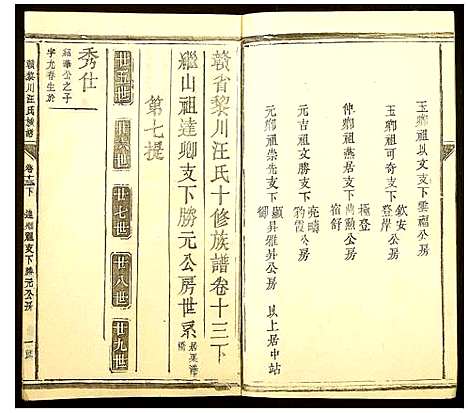 玉卿祖以文支下雲福公房
玉卿祖可奇支下欽安 登岸公房
仲卿祖燕居支下極登 尚勲公房 宿舒
元吉祖文勝支下亮疇 豹霞公房
元卿祖崇先支下顯昇雅昇公房 御 以上居中站
贛省黎川汪氏十修族譜卷十三下
繼山祖達卿支下勝元公房世系
第七提
廿五世 廿六世 廿七世 廿八世 廿九世
秀仕
福華公之子
字允春生於
贛黎川汪氏族譜 卷十三下 達卿支下勝元公房 一